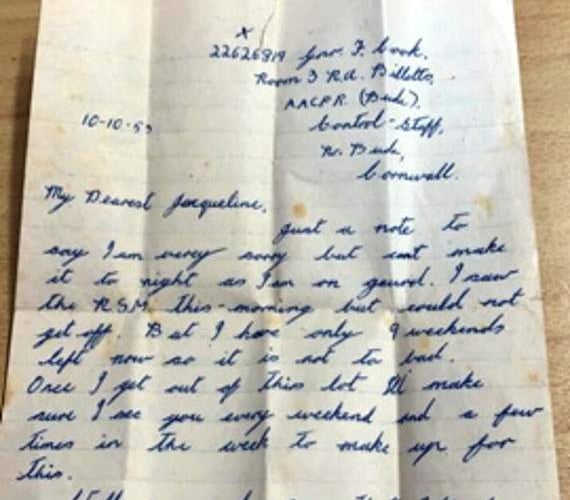 x
22626819 Gnr. F. Cook.
Room 3 R.A. Billetts,
AACPR. (Bude).
10-10-53
Control-Staff,
Nr. Bude,
Cornwall.
My Dearest Jacqueline,
Just a note to
say I am verey sorry but cant make
it to night as I am on geurd. I saw
the RSM this-morning but could not
get off. But I have only 9 weekends
left now so it is not to bad.
Once I get out of this lot Ill make
sure I see you every weekend and a few
times in the week to make up for
this.